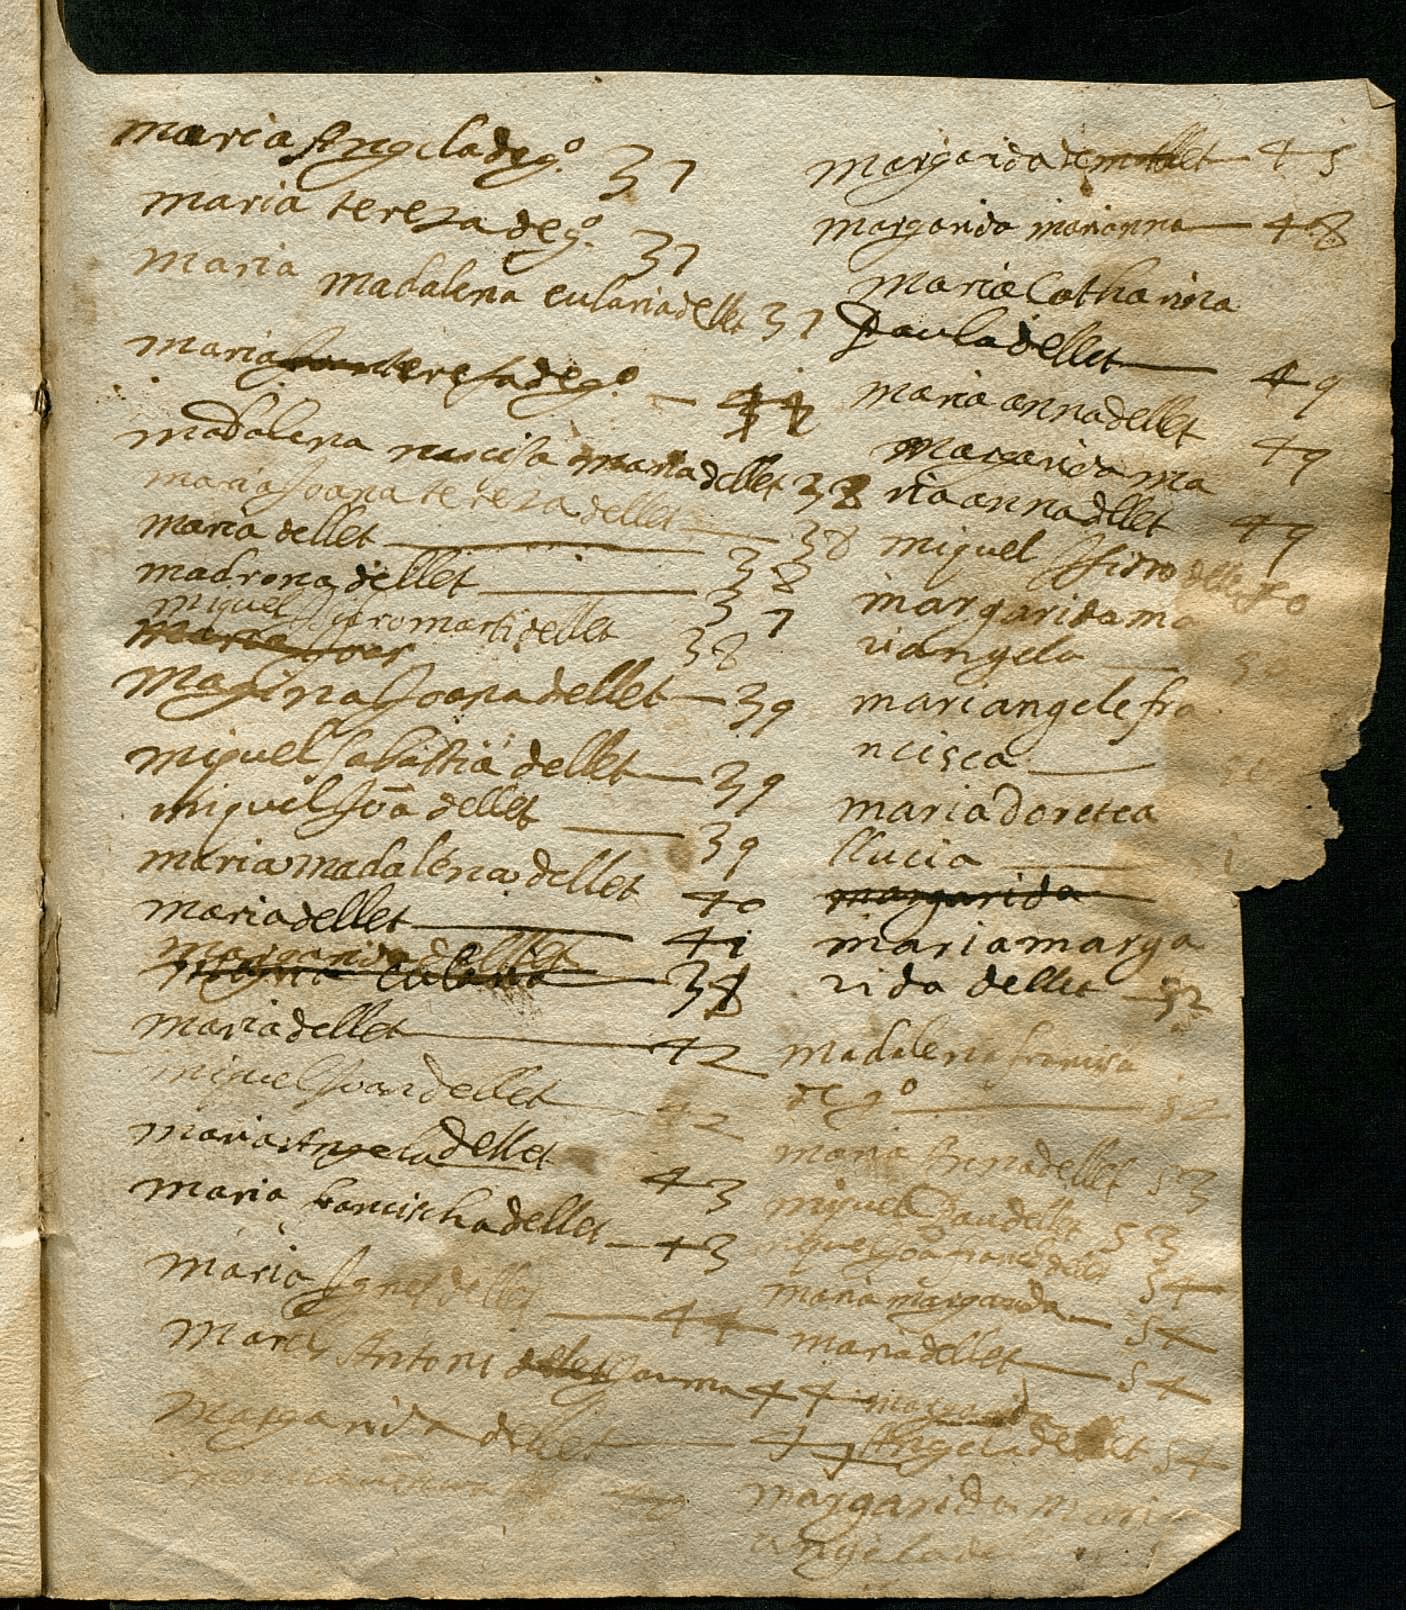 maria Angela deg.º 37
maria tereza deg.º 37
maria
madalena eulariadellet 37
maria teresa deg.º — 44
madalena narcisa maria dellet 38
maria Joana tereza dellet — 38
maria dellet — 38
madrona dellet — 37
miquel Isidro marti dellet 38
maria Joa
Magina Joana dellet — 39
miquel sabastia dellet — 39
miquel Joā dellet — 39
maria madaléna dellet 40
maria dellet — 41
margarida dellet
eularia — 38
maria dellet — 42
miquel Joan dellet — 42
maria Angela dellet 43
maria francischa dellet — 43
maria Ignes dellet — 44
Marti Antoni Jauma 44
Margarida dellet — 44
margarida de 45
margarida marianna — 48
maria Catharina
Paula dellet — 49
maria anna dellet 49
Margarida ma
ria anna dellet 49
miquel Isidro
margarida ma
riangela —
mariangele fra
ncisca —
maria Doretea
llucia —
margarida
maria marga
rida dellet — 52
Madalena francisca
deg.º — 52
maria Anna dellet 53
miquel Pau dellet 53
miquel Joā francè dellet 54
maria margarida — 54
maria dellet — 54
margarida
Angela dellet 54
margarida Mari
angela